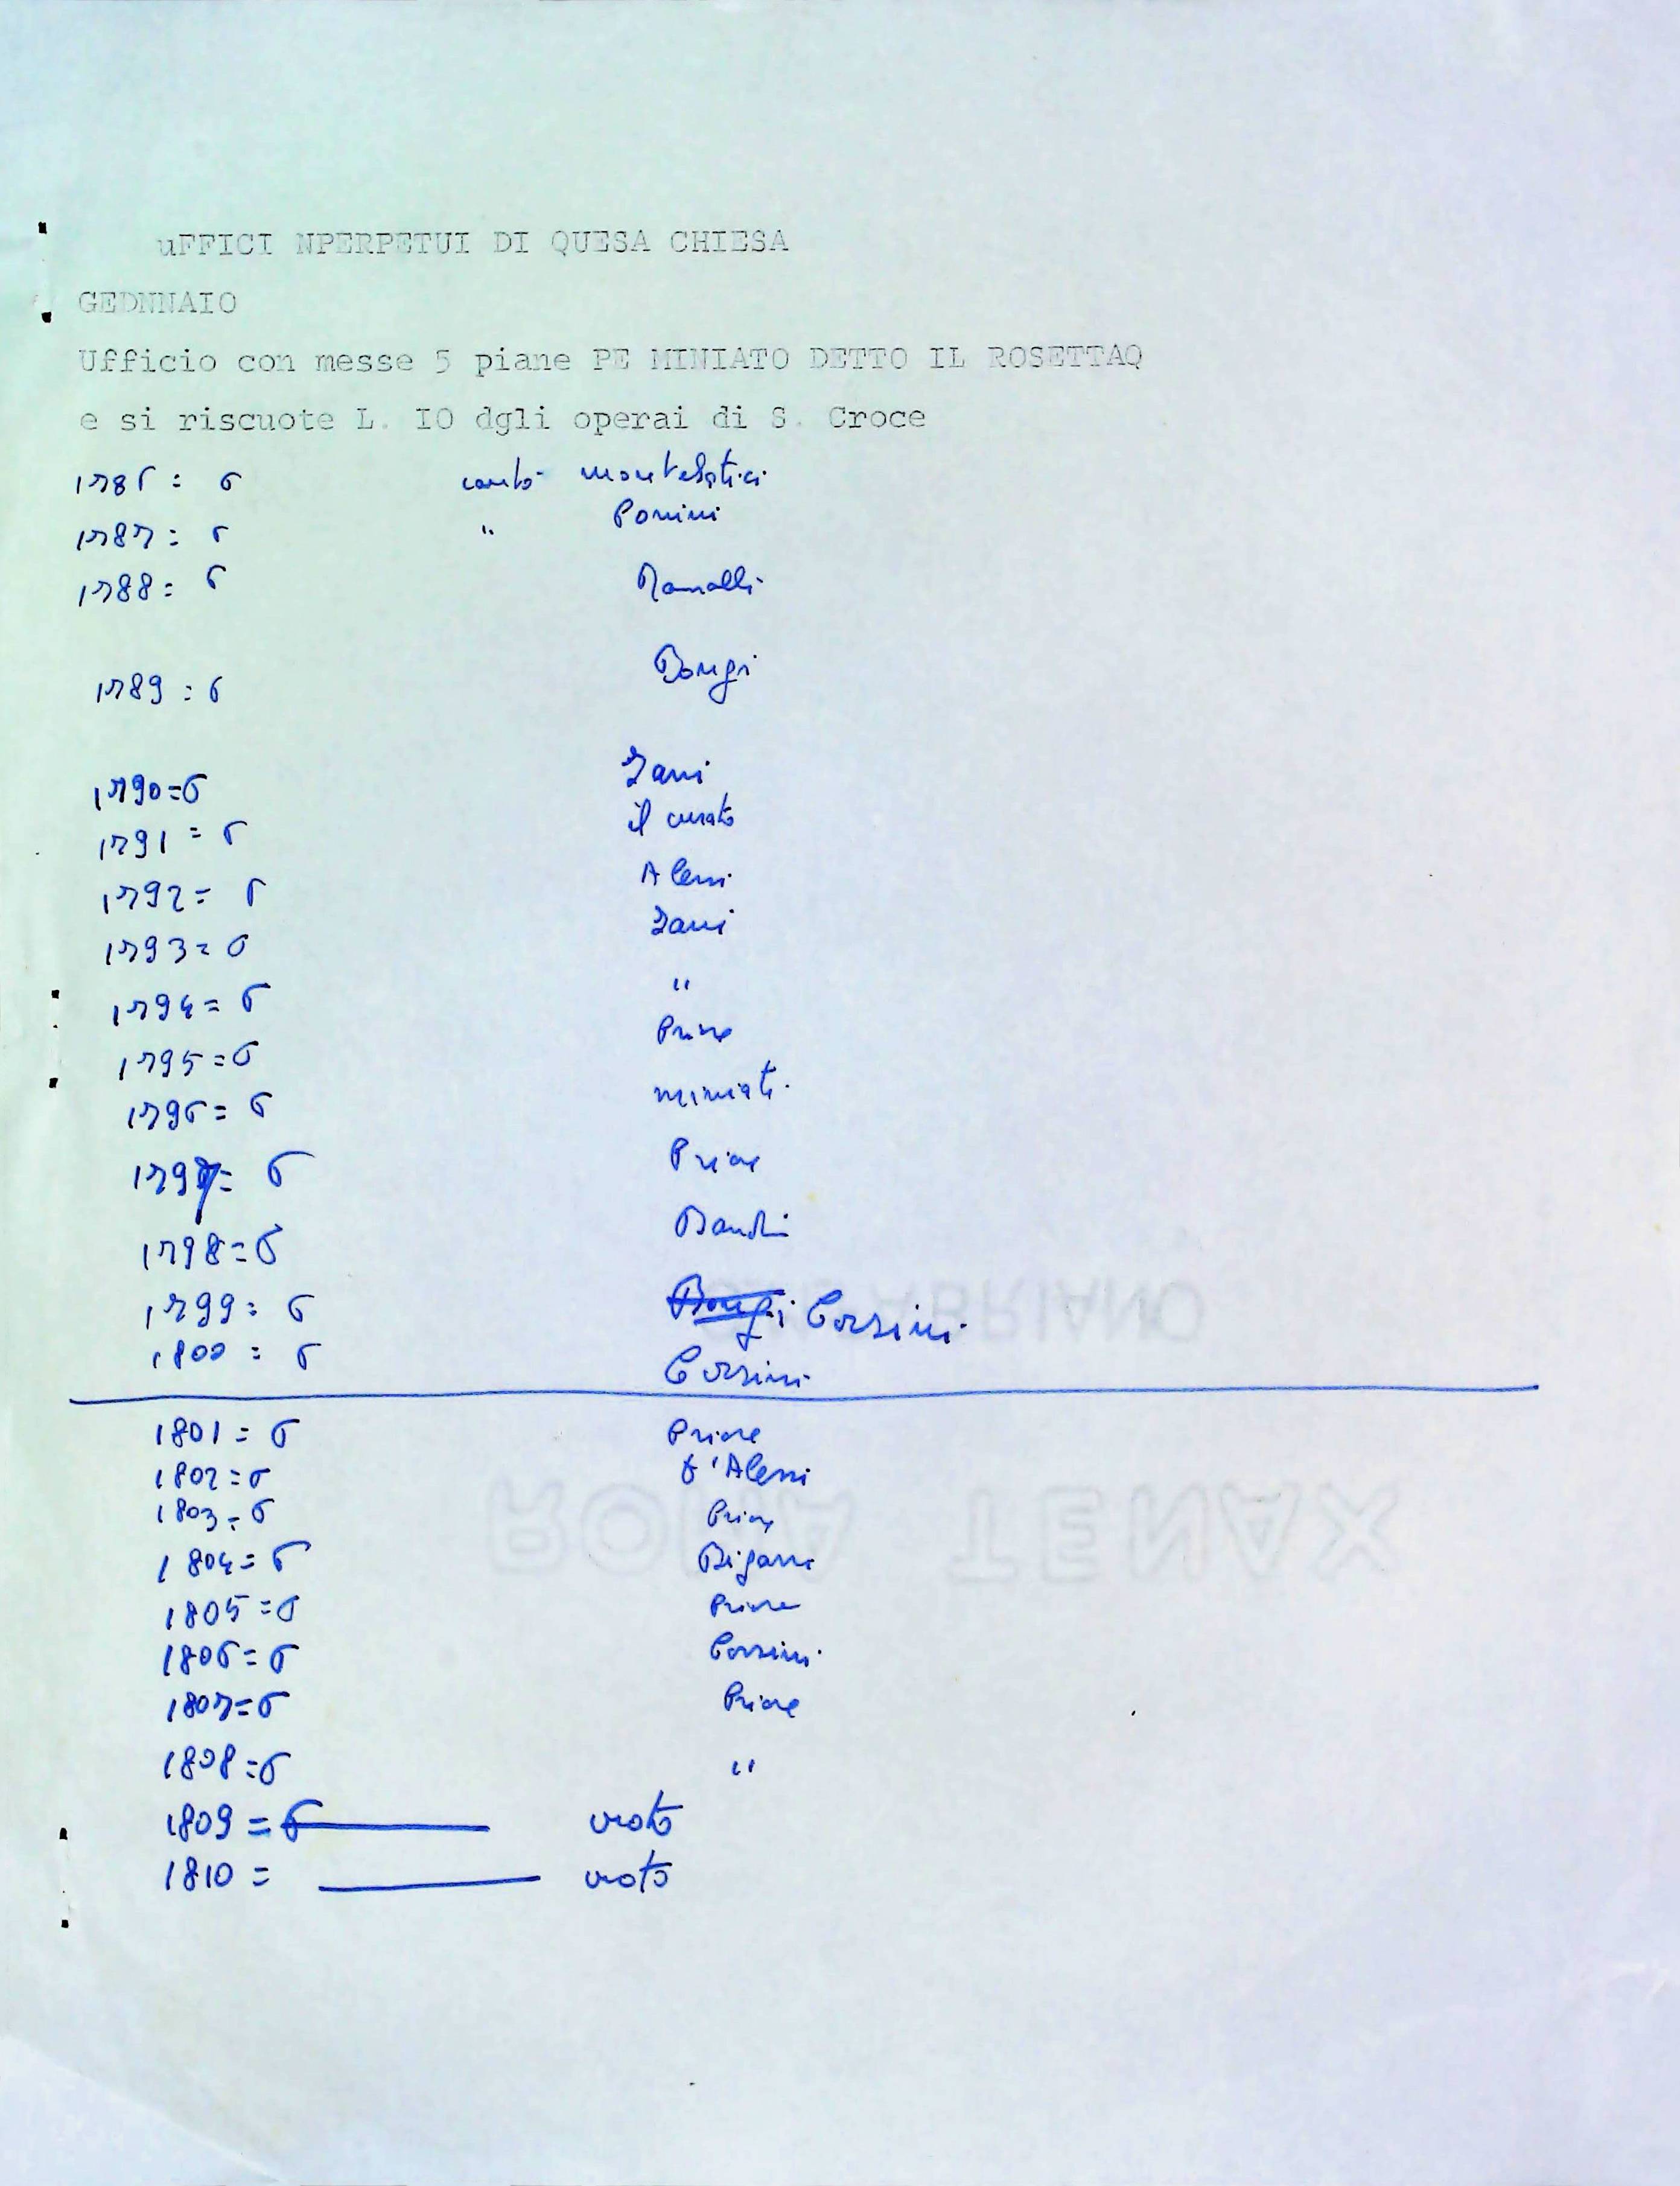 uFFICI NPERPETUI DI QUESA CHIESA
GEDNNAIO
Ufficio con messe 5 piane PE MINIATO DETTO IL ROSETTAQ
e si riscuote L. IO dgli operai di S. Croce
1786 = 6 cantò Montelatici
1787 = 6 " Ponini
1788 = 6
1789 = 6 Bongi
1790 = 6 Zani
1791 = 6 il curato
1792 = 6 Alessi
1793 = 6 Zani
1794 = 6 "
1795 = 6 Priore
1796 = 6 miniati
1797 = 6 Priore
1798 = 6 Bandi
1799 = 6 Bongi Corsini
1800 = 6 Corsini
1801 = 6 Priore
1802 = 6 d'Alessi
1803 = 6 Priore
1804 = 6
1805 = 6 Priore
1806 = 6 Corsini
1807 = 6 Priore
1808 = 6 "
1809 = 6 vuoto
1810 = vuoto
FABRIANO
ROMA TENAX